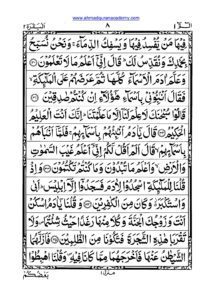 www.ahmadiquranacademy.com
البقرة ٢ ٨ الٓمّٓ ١
فِيْهَا مَنْ يُّفْسِدُ فِيْهَا وَيَسْفِكُ الدِّمَآءَ ۚ وَنَحْنُ نُسَبِّحُ
بِحَمْدِكَ وَنُقَدِّسُ لَكَ ؕ قَالَ اِنِّيْٓ اَعْلَمُ مَا لَا تَعْلَمُوْنَ
وَعَلَّمَ اٰدَمَ الْاَسْمَآءَ كُلَّهَا ثُمَّ عَرَضَهُمْ عَلَى الْمَلٰٓئِكَةِ
فَقَالَ اَنْۢبِـُٔوْنِيْ بِاَسْمَآءِ هٰٓؤُلَآءِ اِنْ كُنْتُمْ صٰدِقِيْنَ
قَالُوْا سُبْحٰنَكَ لَا عِلْمَ لَنَآ اِلَّا مَا عَلَّمْتَنَا ؕ اِنَّكَ اَنْتَ الْعَلِيْمُ
الْحَكِيْمُ قَالَ يٰٓاٰدَمُ اَنْۢبِئْهُمْ بِاَسْمَآئِهِمْ ۚ فَلَمَّآ اَنْۢبَاَهُمْ
بِاَسْمَآئِهِمْ ۙ قَالَ اَلَمْ اَقُلْ لَّكُمْ اِنِّيْٓ اَعْلَمُ غَيْبَ السَّمٰوٰتِ
وَالْاَرْضِ ۙ وَاَعْلَمُ مَا تُبْدُوْنَ وَمَا كُنْتُمْ تَكْتُمُوْنَ وَاِذْ
قُلْنَا لِلْمَلٰٓئِكَةِ اسْجُدُوْا لِاٰدَمَ فَسَجَدُوْٓا اِلَّآ اِبْلِيْسَ ؕ اَبٰى
وَاسْتَكْبَرَ وَكَانَ مِنَ الْكٰفِرِيْنَ وَقُلْنَا يٰٓاٰدَمُ اسْكُنْ
اَنْتَ وَزَوْجُكَ الْجَنَّةَ وَكُلَا مِنْهَا رَغَدًا حَيْثُ شِئْتُمَا ۪ وَلَا
تَقْرَبَا هٰذِهِ الشَّجَرَةَ فَتَكُوْنَا مِنَ الظّٰلِمِيْنَ فَاَزَلَّهُمَا
الشَّيْطٰنُ عَنْهَا فَاَخْرَجَهُمَا مِمَّا كَانَا فِيْهِ ۪ وَقُلْنَا اهْبِطُوْا
منزل ١
بَعْضُكُمْ